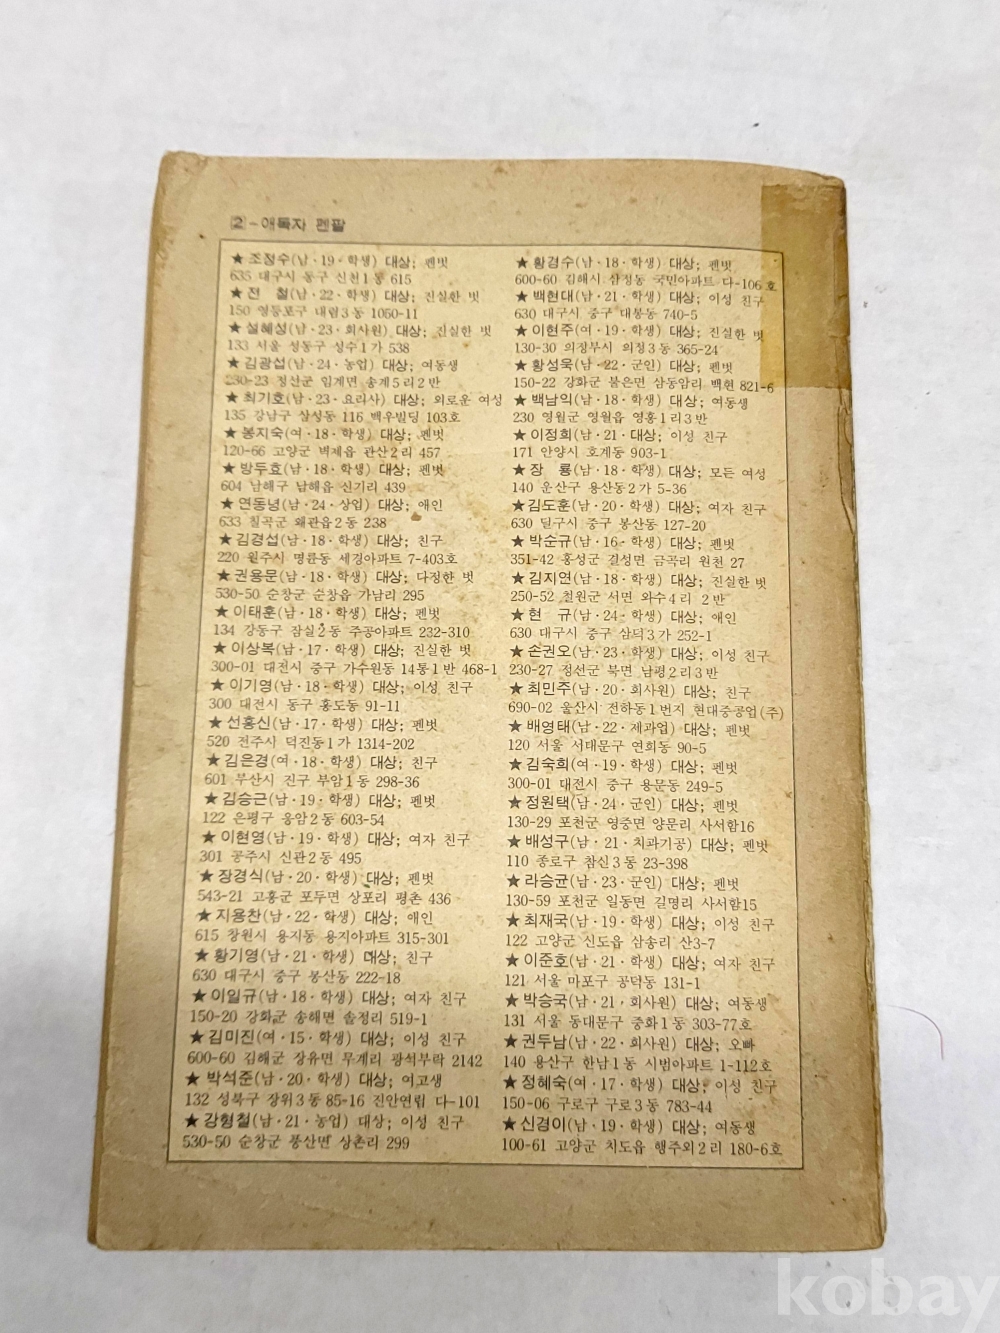 2-애독자 펜팔
★ 조정수(남·19·학생) 대상; 펜벗
635 대구시 동구 신천1동 615
★ 전 철(남·22·학생) 대상; 진실한 벗
150 영등포구 대림3동 1050-11
★ 설혜성(남·23·회사원) 대상; 진실한 벗
133 서울 성동구 성수1가 538
★ 김광섭(남·24·농업) 대상; 여동생
230-23 정산군 임계면 송계5리2반
★ 최기호(남·23·요리사) 대상; 외로운 여성
135 강남구 삼성동 116 백우빌딩 103호
★ 봉지숙(여·18·학생) 대상; 펜벗
120-66 고양군 벽제읍 관산2리 457
★ 방두효(남·18·학생) 대상; 펜벗
604 남해구 남해읍 신기리 439
★ 연동녕(남·24·상업) 대상; 애인
633 칠곡군 왜관읍2동 238
★ 김경섭(남·18·학생) 대상; 친구
220 원주시 명륜동 세경아파트 7-403호
★ 권용문(남·18·학생) 대상; 다정한 벗
530-50 순창군 순창읍 가남리 295
★ 이태훈(남·18·학생) 대상; 펜벗
134 강동구 잠실2동 주공아파트 232-310
★ 이상복(남·17·학생) 대상; 진실한 벗
300-01 대전시 중구 가수원동 14통1반 468-1
★ 이기영(남·18·학생) 대상; 이성 친구
300 대전시 동구 홍도동 91-11
★ 선홍신(남·17·학생) 대상; 펜벗
520 전주시 덕진동1가 1314-202
★ 김은경(여·18·학생) 대상; 친구
601 부산시 진구 부암1동 298-36
★ 김승근(남·19·학생) 대상; 펜벗
122 은평구 응암2동 603-54
★ 이현영(남·19·학생) 대상; 여자 친구
301 공주시 신관2동 495
★ 장경식(남·20·학생) 대상; 펜벗
543-21 고흥군 포두면 상포리 평촌 436
★ 지용찬(남·22·학생) 대상; 애인
615 창원시 용지동 용지아파트 315-301
★ 황기영(남·21·학생) 대상; 친구
630 대구시 중구 봉산동 222-18
★ 이일규(남·18·학생) 대상; 여자 친구
150-20 강화군 송해면 솔정리 519-1
★ 김미진(여·15·학생) 대상; 이성 친구
600-60 김해군 장유면 무계리 광석부락 2142
★ 박석준(남·20·학생) 대상; 여고생
132 성북구 장위3동 85-16 진안연립 다-101
★ 강형철(남·21·농업) 대상; 이성 친구
530-50 순창군 풍산면 상촌리 299
★ 황경수(남·18·학생) 대상; 펜벗
600-60 김해시 삼정동 국민아파트 다-106호
★ 백현대(남·21·학생) 대상; 이성 친구
630 대구시 중구 대봉동 740-5
★ 이현주(여·19·학생) 대상; 진실한 벗
130-30 의정부시 의정3동 365-24
★ 황성욱(남·22·군인) 대상; 펜벗
150-22 강화군 불은면 삼동암리 백현 821-6
★ 백남익(남·18·학생) 대상; 여동생
230 영월군 영월읍 영흥1리3반
★ 이정희(남·21·대상; 이성 친구
171 안양시 호계동 903-1
★ 장 룡(남·18·학생) 대상; 모든 여성
140 운산구 용산동2가 5-36
★ 김도훈(남·20·학생) 대상; 여자 친구
630 딜구시 중구 봉산동 127-20
★ 박순규(남·16·학생) 대상; 펜벗
351-42 홍성군 결성면 금곡리 원천 27
★ 김지연(남·18·학생) 대상; 진실한 벗
250-52 철원군 서면 와수4리 2반
★ 현 규(남·24·학생) 대상; 애인
630 대구시 중구 삼덕3가 252-1
★ 손권오(남·23·학생) 대상; 이성 친구
230-27 정선군 북면 남평2리3반
★ 최민주(남·20·회사원) 대상; 친구
690-02 울산시 전하동1번지 현대중공업(주)
★ 배영태(남·22·제과업) 대상; 펜벗
120 서울 서대문구 연희동 90-5
★ 김숙희(여·19·학생) 대상; 펜벗
300-01 대전시 중구 용문동 249-5
★ 정원택(남·24·군인) 대상; 펜벗
130-29 포천군 영중면 양문리 사서함16
★ 배성구(남·21·치과기공) 대상; 펜벗
110 종로구 참신3동 23-398
★ 라승균(남·23·군인) 대상; 펜벗
130-59 포천군 일동면 길명리 사서함15
★ 최재국(남·19·학생) 대상; 이성 친구
122 고양군 신도읍 삼송리 산3-7
★ 이준호(남·21·학생) 대상; 여자 친구
121 서울 마포구 공덕동 131-1
★ 박승국(남·21·회사원) 대상; 여동생
131 서울 동대문구 중화1동 303-77호
★ 권두남(남·22·회사원) 대상; 오빠
140 용산구 한남1동 시범아파트 1-112호
★ 정혜숙(여·17·학생) 대상; 이성 친구
150-06 구로구 구로3동 783-44
★ 신경이(남·19·학생) 대상; 여동생
100-61 고양군 치도읍 행주외2리 180-6호
kobay